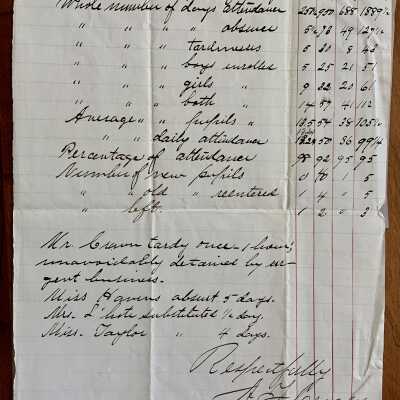 Whole number of days attendance 685
" " " " absence 49
" " " tardiness 5 30 8 43
" " " boys enrolled 5 25 21 51
" " " girls " 9 32 20 61
" " " both " 14 57 41 112
Average " " pupils " 38
" " daily attendance 50 36 99½
Percentage of attendance 98 92 95 95
Number of new pupils 5
" " old " reentered 1 4 0 5
" " left. 1 2 0 3
Mr. tardy once - 1 hour,
unavoidably detained by ur-
gent business.
Miss Havens absent 5 days.
Mrs. L'hote substituted ½ day.
Miss. Taylor " 4 days.
Respectfully